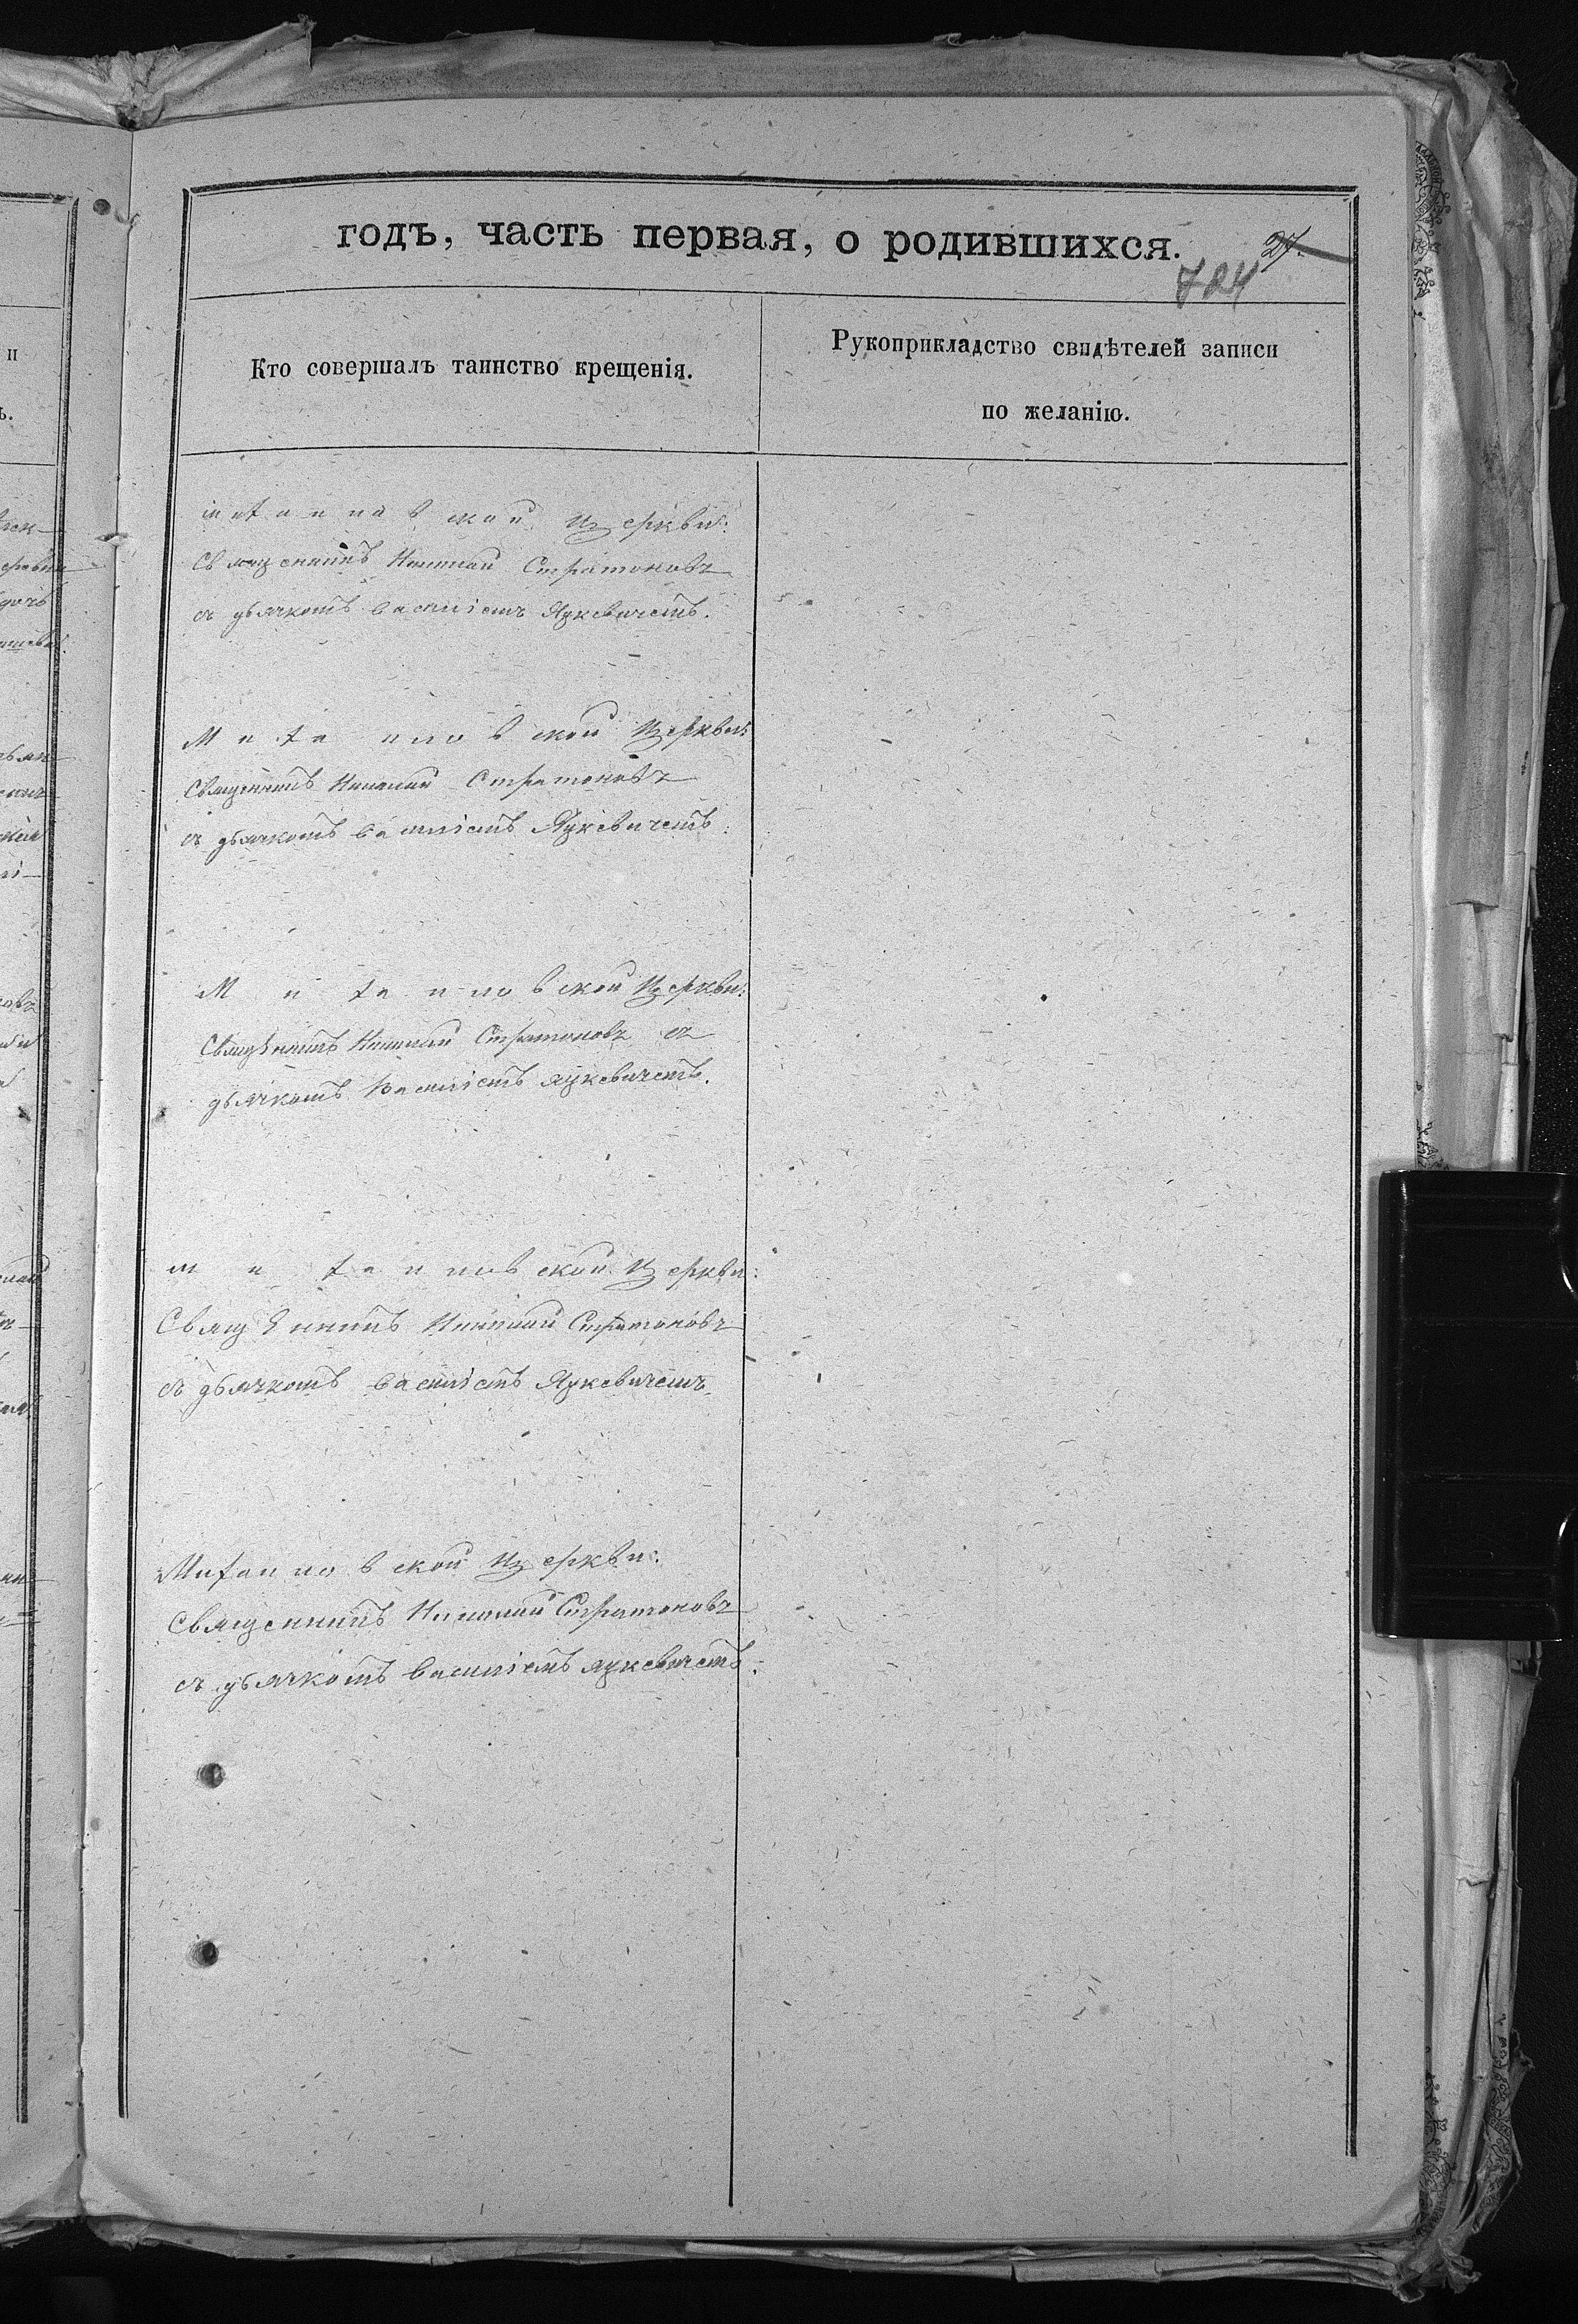 годъ, часть первая, о родившихся.
27.
724
Кто совершалъ таинство крещенія.
Рукоприкладство свидѣтелей записи
по желанію.
Михаиловской Церкви:
Священникъ Николай Стратоновъ
съ дьячкомъ Василіемъ Яцкевичемъ.
Михаиловской Церкви:
Священникъ Николай Стратоновъ
съ дьячкомъ Василіемъ Яцкевичемъ.
Михаиловской Церкви:
Священникъ Николай Стратоновъ съ
дьячкомъ Василіемъ Яцкевичемъ.
Михаиловской Церкви:
Священникъ Николай Стратоновъ
съ дьячкомъ Василіемъ Яцкевичемъ.
Михаиловской Церкви:
Священникъ Николай Стратоновъ
съ дьячкомъ Василіемъ Яцкевичемъ.